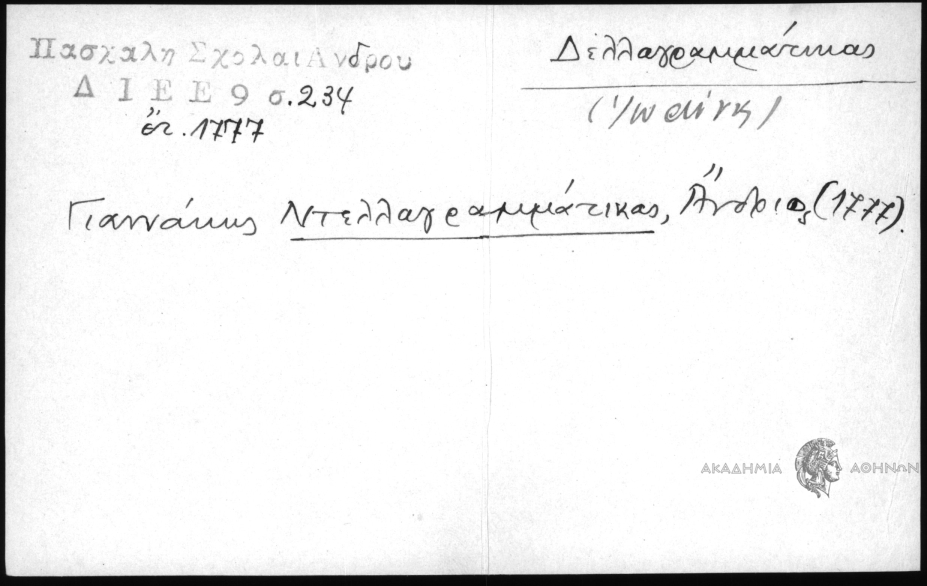 Πασχαλη Σχολαι Ανδρου
ΔΙΕΕ 9 σ. 234
ἔτ. 1777
Δελλαγραμμάτικας
Γιαννάκης Ντελλαγραμμάτικας, Ἄνδρος (1777).
ΑΚΑΔΗΜΙΑ ΑΘΗΝΩΝ